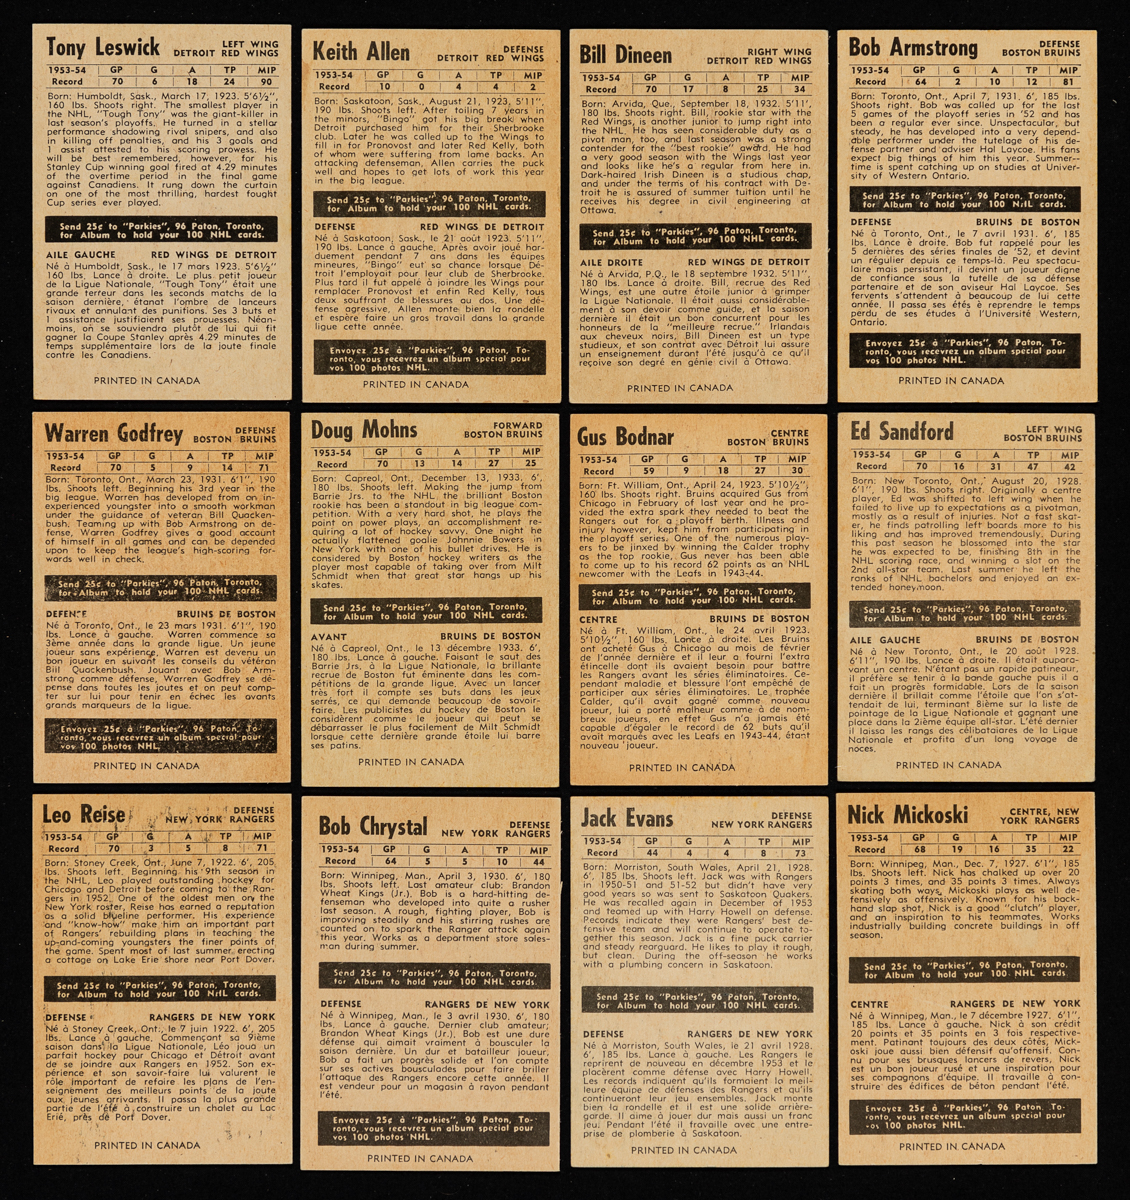 Tony Leswick
LEFT WING
DETROIT RED WINGS
1953-54 GP G A TP MIP
Record 70 6 18 24 90
Born: Humboldt, Sask., March 17, 1923. 5'6½",
160 lbs. Shoots right. The smallest player in
the NHL, "Tough Tony" was the giant-killer in
last season's playoffs. He turned in a stellar
performance shadowing rival snipers, and also
in killing off penalties, and his 3 goals and
1 assist attested to his scoring prowess. He
will be best remembered, however, for his
Stanley Cup winning goal fired at 4.29 minutes
of the overtime period in the final game
against Canadiens. It rung down the curtain
on one of the most thrilling, hardest fought
Cup series ever played.
Send 25¢ to "Parkies", 96 Paton, Toronto,
for Album to hold your 100 NHL cards.
AILE GAUCHE RED WINGS DE DETROIT
Né à Humboldt, Sask., le 17 mars 1923. 5'6½"
160 lbs. Lance à droite. Le plus petit joueur
de la Ligue Nationale, "Tough Tony" était une
grande terreur dans les seconds matchs de la
saison dernière, étant l'ombre de lanceurs
rivaux et annulant des punitions. Ses 3 buts et
1 assistance justifiaient ses prouesses. Néan-
moins, on se souviendra plutôt de lui qui fit
gagner la Coupe Stanley après 4.29 minutes de
temps supplémentaire lors de la joute finale
contre les Canadiens.
PRINTED IN CANADA
Keith Allen
DEFENSE
DETROIT RED WINGS
1953-54 GP G A TP MIP
Record 10 0 4 4 2
Born: Saskatoon, Sask., August 21, 1923, 5'11",
190 lbs. Shoots left. After toiling 7 years in
the minors, "Bingo" got his big break when
Detroit purchased him for their Sherbrooke
club. Later he was called up to the Wings to
fill in for Pronovost and later Red Kelly, both
of whom were suffering from lame backs. An
attacking defenseman, Allen carries the puck
well and hopes to get lots of work this year
in the big league.
Send 25¢ to "Parkies", 96 Paton, Toronto,
for Album to hold your 100 NHL cards.
DEFENSE RED WINGS DE DETROIT
Né à Saskatoon, Sask., le 21 août 1923. 5'11",
190 lbs. Lance à gauche. Après avoir joué har-
duement pendant 7 ans dans les équipes
mineures, "Bingo" eut sa chance lorsque Dé-
troit l'employat pour leur club de Sherbrooke.
Plus tard il fut appelé à joindre les Wings pour
remplacer Pronovost et enfin Red Kelly, tous
deux souffrant de blessures au dos. Une dé-
fense agressive, Allen monte bien la rondelle
et espère faire un gros travail dans la grande
ligue cette année.
Envoyez 25¢ à "Parkies", 96 Paton, To-
ronto, vous recevrez un album special pour
vos 100 photos NHL.
PRINTED IN CANADA
Bill Dineen
RIGHT WING
DETROIT RED WINGS
1953-54 GP G A TP MIP
Record 70 17 8 25 34
Born: Arvida, Que., September 18, 1932. 5'11",
180 lbs. Shoots right. Bill, rookie star with the
Red Wings, is another junior to jump right into
the NHL. He has seen considerable duty as a
pivot man, too, and last season was a strong
contender for the "best rookie" award. He had
a very good season with the Wings last year
and looks like he's a regular from here in.
Dark-haired Irish Dineen is a studious chap,
and under the terms of his contract with De-
troit he is assured of summer tuition until he
receives his degree in civil engineering at
Ottawa.
Send 25¢ to "Parkies", 96 Paton, Toronto,
for Album to hold your 100 NHL cards.
AILE DROITE RED WINGS DE DETROIT
Né à Arvida, P.Q., le 18 septembre 1932. 5'11",
180 lbs. Lance à droite. Bill, recrue des Red
Wings, est une autre étoile junior à grimper
la Ligue Nationale. Il était aussi considérable-
ment à son devoir comme guide, et la saison
dernière il était un bon concurrent pour les
honneurs de la "meilleure recrue." Irlandais
aux cheveux noirs, Bill Dineen est un type
studieux, et son contrat avec Détroit lui assure
un enseignement durant l'été jusqu'à ce qu'il
reçoive son degré en génie civil à Ottawa.
PRINTED IN CANADA
Bob Armstrong
DEFENSE
BOSTON BRUINS
1953-54 GP G A TP MIP
Record 64 2 10 12 81
Born: Toronto, Ont., April 7, 1931. 6', 185 lbs.
Shoots right. Bob was called up for the last
5 games of the playoff series in '52 and has
been a regular ever since. Unspectacular, but
steady, he has developed into a very depend-
able performer under the tutelage of his de-
fense partner and adviser Hal Laycoe. His fans
expect big things of him this year. Summer-
time is spent catching up on studies at Univer-
sity of Western Ontario.
Send 25¢ to "Parkies", 96 Paton, Toronto,
for Album to hold your 100 NHL cards.
DEFENSE BRUINS DE BOSTON
Né à Toronto, Ont., le 7 avril 1931. 6', 185
lbs. Lance è droite. Bob fut rappelé pour les
5 dernières des séries finales de '52, et devint
un régulier depuis ce temps-là. Peu spectacu-
laire mais persistant, il devint un joueur digne
de confiance sous la tutelle de sa défense
partenaire et de son aviseur Hal Laycoe. Ses
fervents s'attendent à beaucoup de lui cette
année. Il passa ses étés è reprendre le temps
perdu de ses études à l'Université Western,
Ontario.
Envoyez 25¢ à "Parkies", 96 Paton, To-
ronto, vous recevrez un album special pour
vos 100 photos NHL.
PRINTED IN CANADA
Warren Godfrey
DEFENSE
BOSTON BRUINS
1953-54 GP G A TP MIP
Record 70 5 9 14 71
Born: Toronto, Ont., March 23, 1931. 6'1", 190
lbs. Shoots left. Beginning his 3rd year in the
big league. Warren has developed from an in-
experienced youngster into a smooth workman
under the guidance of veteran Bill Quacken-
bush. Teaming up with Bob Armstrong on de-
fense, Warren Godfrey gives a good account
of himself in all games and can be depended
upon to keep the league's high-scoring for-
wards well in check.
Send 25¢ to "Parkies", 96 Paton, Toronto,
for Album to hold your 100 NHL cards.
DEFENSE BRUINS DE BOSTON
Né à Toronto, Ont., le 23 mars 1931. 6'1", 190
lbs. Lance à gauche. Warren commence sa
3ème année dans la grande ligue. Un jeune
joueur sans expérience, Warren est devenu un
bon joueur en suivant les conseils du vétéran
Bill Quackenbush. Jouant avec Bob Arm-
strong comme défense, Warren Godfrey se dé-
pense dans toutes les joutes et on peut comp-
ter sur lui pour tenir en échec les avants
grands marqueurs de la ligue.
Envoyez 25¢ à "Parkies", 96 Paton, To-
ronto, vous recevrez un album special pour
vos 100 photos NHL.
PRINTED IN CANADA
Doug Mohns
FORWARD
BOSTON BRUINS
1953-54 GP G A TP MIP
Record 70 13 14 27 25
Born: Capreol, Ont., December 13, 1933. 6',
180 lbs. Shoots left. Making the jump from
Barrie Jrs. to the NHL, the brilliant Boston
rookie has been a standout in big league com-
petition. With a very hard shot, he plays the
point on power plays, an accomplishment re-
quiring a lot of hockey savvy. One night he
actually flattened goalie Johnnie Bowers in
New York with one of his bullet drives. He is
considered by Boston hockey writers as the
player most capable of taking over from Milt
Schmidt when that great star hangs up his
skates.
Send 25¢ to "Parkies", 96 Paton, Toronto,
for Album to hold your 100 NHL cards.
AVANT BRUINS DE BOSTON
Né à Capreol, Ont., le 13 décembre 1933. 6',
180 lbs. Lance à gauche. Faisant le saut des
Barrie Jrs. à la Ligue Nationale, la brillante
recrue de Boston fut éminente dans les com-
pétitions de la grande ligue. Avec un lancer
très fort il compte ses buts dans les jeux
serrés, ce qui demande beaucoup de savoir-
faire. Les publicistes du hockey de Boston le
considèrent comme le joueur qui peut se
débarrasser le plus facilement de Milt Schmidt
lorsque cette dernière grande étoile lui barre
ses patins.
PRINTED IN CANADA
Gus Bodnar
CENTRE
BOSTON BRUINS
1953-54 GP G A TP MIP
Record 59 9 18 27 30
Born: Ft. William, Ont., April 24, 1923. 5'10½",
160 lbs. Shoots right. Bruins acquired Gus from
Chicago in February of last year and he pro-
vided the extra spark they needed to beat the
Rangers out for a playoff berth. Illness and
injury however, kept him from participating in
the playoff series. One of the numerous play-
ers to be jinxed by winning the Calder trophy
as the top rookie, Gus never has been able
to come up to his record 62 points as an NHL
newcomer with the Leafs in 1943-44.
Send 25¢ to "Parkies", 96 Paton, Toronto,
for Album to hold your 100 NHL cards.
CENTRE BRUINS DE BOSTON
Né à Ft. William, Ont., le 24 avril 1923.
5'10½", 160 lbs. Lance à droite. Les Bruins
ont acheté Gus à Chicago au mois de février
de l'année dernière et il leur a fourni l'extra
étincelle dont ils avaient besoin pour battre
les Rangers avant les séries éliminatoires. Ce-
pendant maladie et blessure l'ont empêché de
participer aux séries éliminatoires. Le trophée
Calder, qu'il avait gagné comme nouveau
joueur, lui a porté malheur comme à de nom-
breux joueurs, en effet Gus n'a jamais été
capable d'égaler le record de 62 buts qu'il
avait marqués avec les Leafs en 1943-44, étant
nouveau joueur.
PRINTED IN CANADA
Ed Sandford
LEFT WING
BOSTON BRUINS
1953-54 GP G A TP MIP
Record 70 16 31 47 42
Born: New Toronto, Ont., August 20, 1928.
6'1", 190 lbs. Shoots right. Originally a centre
player, Ed was shifted to left wing when he
failed to live up to expectations as a pivotman,
mostly as a result of injuries. Not a fast skat-
er, he finds patrolling left boards more to his
liking and has improved tremendously. During
this past season he blossomed into the star
he was expected to be, finishing 8th in the
NHL scoring race, and winning a slot on the
2nd all-star team. Last summer he left the
ranks of NHL bachelors and enjoyed an ex-
tended honeymoon.
Send 25¢ to "Parkies", 96 Paton, Toronto,
for Album to hold your 100 NHL cards.
AILE GAUCHE BRUINS DE BOSTON
Né à New Toronto, Ont., le 20 août 1928.
6'11", 190 lbs. Lance à droite. Il était aupara-
vant un centre. N'étant pas un rapide patineur,
il préfère se tenir à la bande gauche puis il a
fait un progrès formidable. Lors de la saison
dernière il brillait comme l'étoile que l'on s'at-
tendait de lui, terminant 8ième sur la liste de
pointage de la Ligue Nationale et gagnant une
place dans la 2ième équipe all-star. L'été dernier
il laissa les rangs des célibataires de la Ligue
Nationale et profita d'un long voyage de
noces.
PRINTED IN CANADA
Leo Reise
DEFENSE
NEW YORK RANGERS
1953-54 GP G A TP MIP
Record 70 3 5 8 71
Born: Stoney Creek, Ont., June 7, 1922. 6', 205
lbs. Shoots left. Beginning his 9th season in
the NHL, Leo played outstanding hockey for
Chicago and Detroit before coming to the Ran-
gers in 1952. One of the oldest men on the
New York roster, Reise has earned a reputation
as a solid blueline performer. His experience
and "know-how" make him an important part
of Rangers' rebuilding plans in teaching the
up-and-coming youngsters the finer points of
the game. Spent most of last summer erecting
a cottage on Lake Erie shore near Port Dover.
Send 25¢ to "Parkies", 96 Paton, Toronto,
for Album to hold your 100 NHL cards.
DEFENSE RANGERS DE NEW YORK
Né à Stoney Creek, Ont., le 7 juin 1922. 6', 205
lbs. Lance à gauche. Commençant sa 9ième
saison dans la Ligue Nationale, Léo joua un
parfait hockey pour Chicago et Détroit avant
de se joindre aux Rangers en 1952. Son ex-
périence et son savoir-faire lui valurent le
rôle important de refaire les plans de l'en-
seignement des meilleurs points de la joute
aux jeunes arrivants. Il passa la plus grande
partie de l'été à construire un chalet au Lac
Erié, près de Port Dover.
PRINTED IN CANADA
Bob Chrystal
DEFENSE
NEW YORK RANGERS
1953-54 GP G A TP MIP
Record 64 5 5 10 44
Born: Winnipeg, Man., April 3, 1930. 6', 180
lbs. Shoots left. Last amateur club: Brandon
Wheat Kings (Jr.). Bob is a hard-hitting de-
fenseman who developed into quite a rusher
last season. A rough, fighting player, Bob is
improving steadily and his stirring rushes are
counted on to spark the Ranger attack again
this year. Works as a department store sales-
man during summer.
Send 25¢ to "Parkies", 96 Paton, Toronto,
for Album to hold your 100 NHL cards.
DEFENSE RANGERS DE NEW YORK
Né à Winnipeg, Man., le 3 avril 1930. 6', 180
lbs. Lance à gauche. Dernier club amateur:
Brandon Wheat Kings (Jr.). Bob est une dure
défense qui aimait vraiment à bousculer la
saison dernière. Un dur et batailleur joueur,
Bob a fait un progrès solide et l'on compte
sur ses actives bousculades pour faire briller
l'attaque des Rangers encore cette année. Il
est vendeur pour un magasin à rayon pendant
l'été.
Envoyez 25¢ à "Parkies", 96 Paton, To-
ronto, vous recevrez un album special pour
vos 100 photos NHL.
PRINTED IN CANADA
Jack Evans
DEFENSE
NEW YORK RANGERS
1953-54 GP G A TP MIP
Record 44 4 4 8 73
Born: Morriston, South Wales, April 21, 1928.
6', 185 lbs. Shoots left. Jack was with Rangers
in 1950-51 and 51-52 but didn't have very
good years so was sent to Saskatoon Quakers.
He was recalled again in December of 1953
and teamed up with Harry Howell on defense.
Records indicate they were Rangers' best de-
fensive team and will continue to operate to-
gether this season. Jack is a fine puck carrier
and steady rearguard. He likes to play it rough,
but clean. During the off-season he works
with a plumbing concern in Saskatoon.
Send 25¢ to "Parkies", 96 Paton, Toronto,
for Album to hold your 100 NHL cards.
DEFENSE RANGERS DE NEW YORK
Né à Morriston, South Wales, le 21 avril 1928.
6', 185 lbs. Lance à gauche. Les Rangers le
reprirent de nouveau en décembre 1953 et le
placèrent comme défense avec Harry Howell.
Les records indiquent qu'ils formaient la meil-
leure équipe de défense des Rangers et qu'ils
continueront leur jeu ensembles. Jack monte
bien la rondelle et il est une solide arrière-
garde. Il aime à jouer dur mais aussi un franc
jeu. Pendant l'été il travaille avec une entre-
prise de plomberie à Saskatoon.
PRINTED IN CANADA
Nick Mickoski
CENTRE, NEW
YORK RANGERS
1953-54 GP G A TP MIP
Record 68 19 16 35 22
Born: Winnipeg, Man., Dec. 7, 1927. 6'1", 185
lbs. Shoots left. Nick has chalked up over 20
points 3 times, and 35 points 3 times. Always
skating both ways, Mickoski plays as well de-
fensively as offensively. Known for his back-
hand slap shot, Nick is a good "clutch" player,
and an inspiration to his teammates. Works
industrially building concrete buildings in off
season.
Send 25¢ to "Parkies", 96 Paton, Toronto,
for Album to hold your 100 NHL cards.
CENTRE RANGERS DE NEW YORK
Né à Winnipeg, Man., le 7 décembre 1927. 6'1",
185 lbs. Lance à gauche. Nick à son crédit
20 points et 35 points en 3 fois respective-
ment. Patinant toujours des deux côtés, Mick-
oski joue aussi bien défensif qu'offensif. Con-
nu pour ses brusques lancers de revers, Nick
est un bon joueur rusé et une inspiration pour
ses compagnons d'équipe. Il travaille à con-
struire des édifices de béton pendant l'été.
Envoyez 25¢ à "Parkies", 96 Paton, To-
ronto, vous recevrez un album special pour
vos 100 photos NHL.
PRINTED IN CANADA